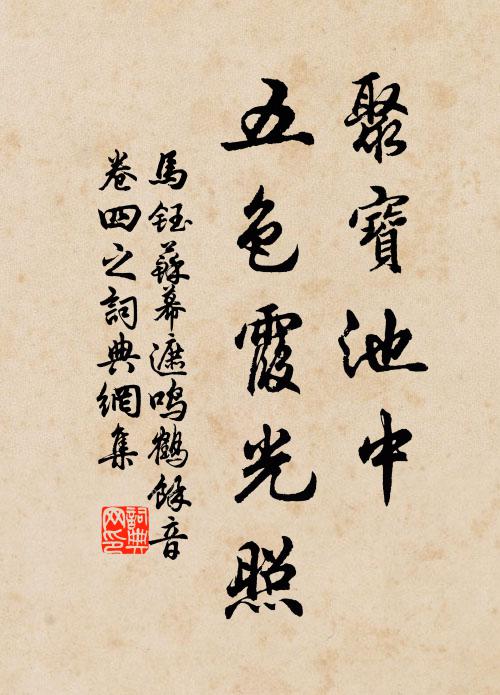 聚寶池中
五色霞光照
馬鈺蘇幕遮鳴鶴餘音
卷四之詞典網集
詞典網印